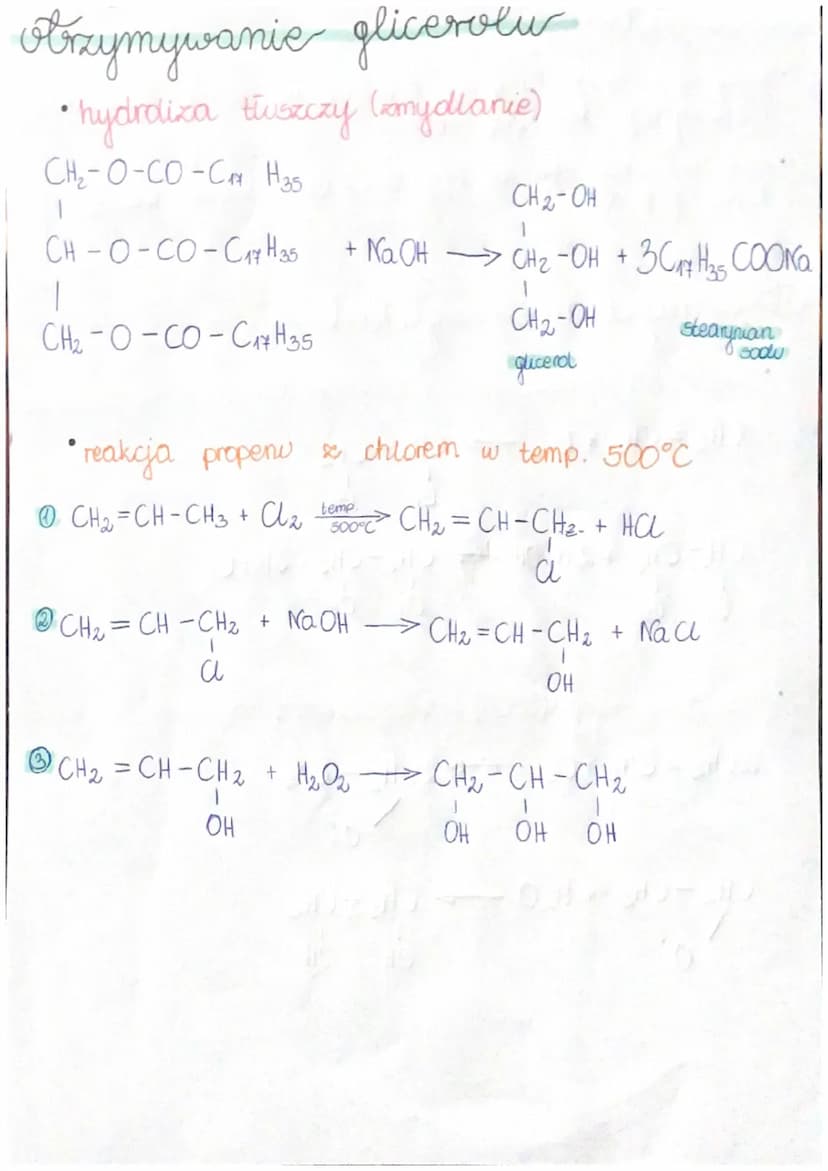 otrzymywanie glicerolu
• hydroliza tłuszczy (zmydlanie)
CH₂-O-CO-C₁₇H₃₅
|
CH-O-CO-C₁₇H₃₅ + NaOH ⟶ CH₂-OH + 3C₁₇H₃₅COONa
|
CH₂-O-CO-C₁₇H₃₅
CH₂-OH
|
|
CH₂-OH
glicerol
stearynian
sodu
• reakcja propenu z chlorem w temp. 500°C
① CH₂=CH-CH₃ + Cl₂ temp. 500°C ⟶ CH₂=CH-CH₂- + HCl
|
Cl
② CH₂=CH-CH₂ + NaOH ⟶ CH₂=CH-CH₂ + NaCl
| |
Cl OH
③ CH₂=CH-CH₂ + H₂O₂ ⟶ CH₂-CH-CH₂
| | | |
OH OH OH OH